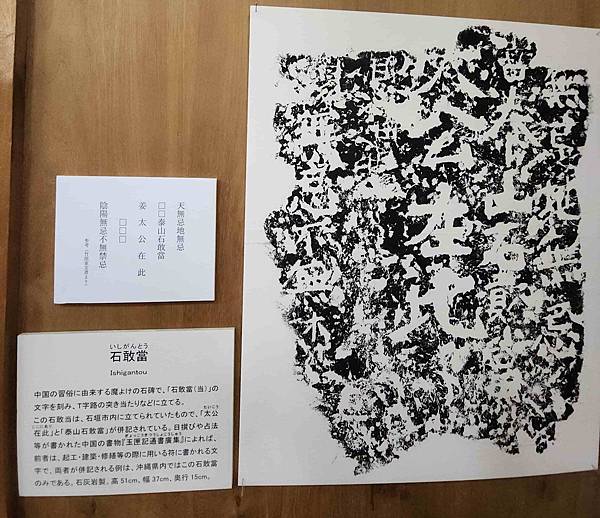 無忌地無忌
泰山石敢當
太公在此
無忌不無
天無忌地無忌
□□泰山石敢當
姜太公在此
□□□
陰陽無忌不無禁忌
いしがんとう
石敢當
Ishigantou
中国の習俗に由来する魔よけの石碑で、「石敢當(当)」の
文字を刻み、T字路の突き当たりなどに立てる。
たいこう
この石敢当は、石垣市内に立てられていたもので、「太公
ここにあり
在此」と「泰山石敢當」が併記されている。日撰びや占法
ぎょっこうきつうしょこうしゅう
等が書かれた中国の書物『玉匣記通書廣集』によれば、
前者は、起工・建築・修繕等の際に用いる符に書かれる文
字で、両者が併記される例は、沖縄県内ではこの石敢當
のみである。石灰岩製。高51cm、幅37cm、奥行15cm。